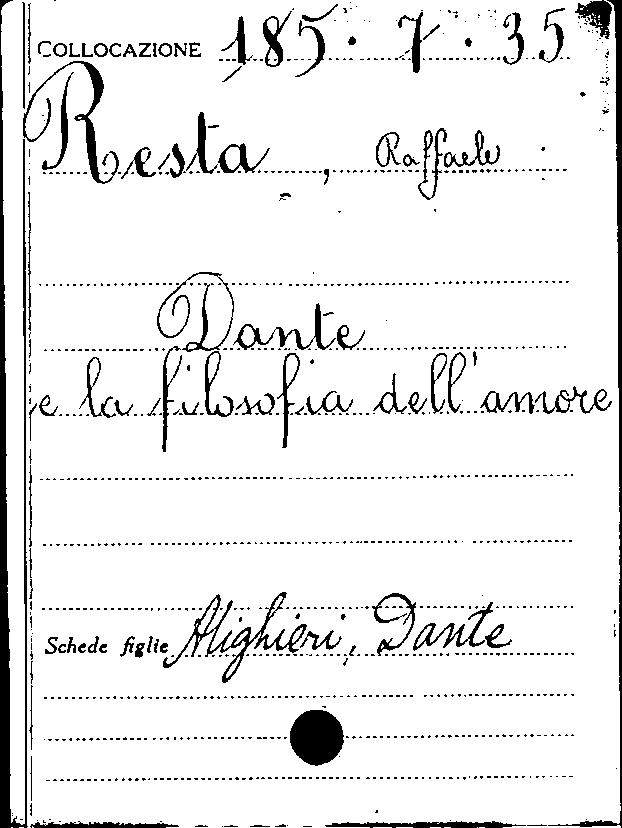 COLLOCAZIONE 185. 7. 35
Resta, Raffaele
Dante
e la filosofia dell'amore
Schede figlie Alighieri, Dante